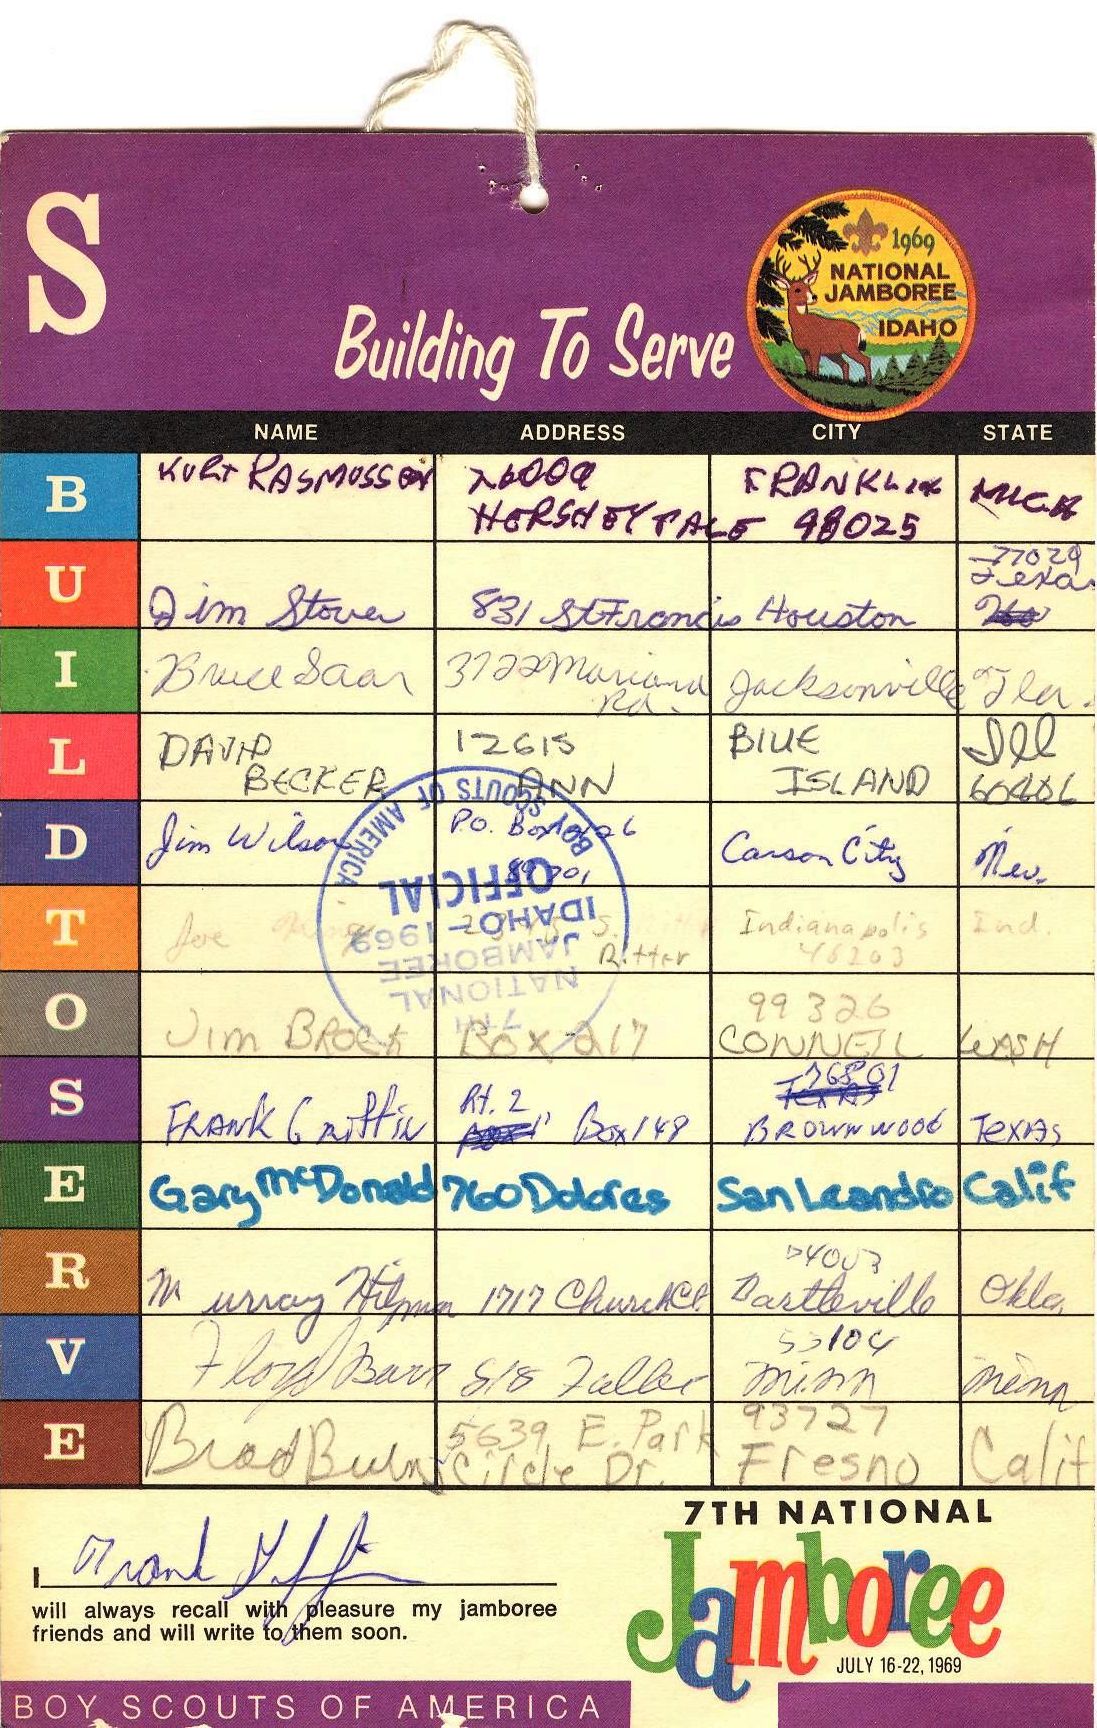 S
Building To Serve
1969
NATIONAL
JAMBOREE
IDAHO
NAME ADDRESS CITY STATE
B KURT RASMUSSEN 26009 FRANKLIN MICH
HERSHEY DALE 48025
U Jim Stover 831 St Francis Houston 77029 Texas
I Bruce Saar 3722 Mariana Rd. Jacksonville Fla.
L DAVID 12615 BLUE Ill
BECKER ANN ISLAND 60406
D Jim Wilson P.O. Box Carson City Nev.
T Joe S. Ritter Indianapolis Ind.
Ritter 46203
O Jim BROCK BOX 217 99326 CONNELL WASH
S FRANK Griffin Rt. 2 Box 148 76801 BROWNWOOD TEXAS
TEXAS
E Gary McDonald 760 Dolores San Leandro Calif
R Murray 1717 Church Ct. 74003 Bartleville Okla
V Floyd Barr 818 Fuller 55104 Minn Minn
E Brad 5639 E. Park 93727 Calif
Circle Dr. Fresno
BOY SCOUTS OF AMERICA
7TH
NATIONAL
JAMBOREE
IDAHO-1969
OFFICIAL
I Frank Griffin
will always recall with pleasure my jamboree
friends and will write to them soon.
7TH NATIONAL
Jamboree
JULY 16-22, 1969
BOY SCOUTS OF AMERICA